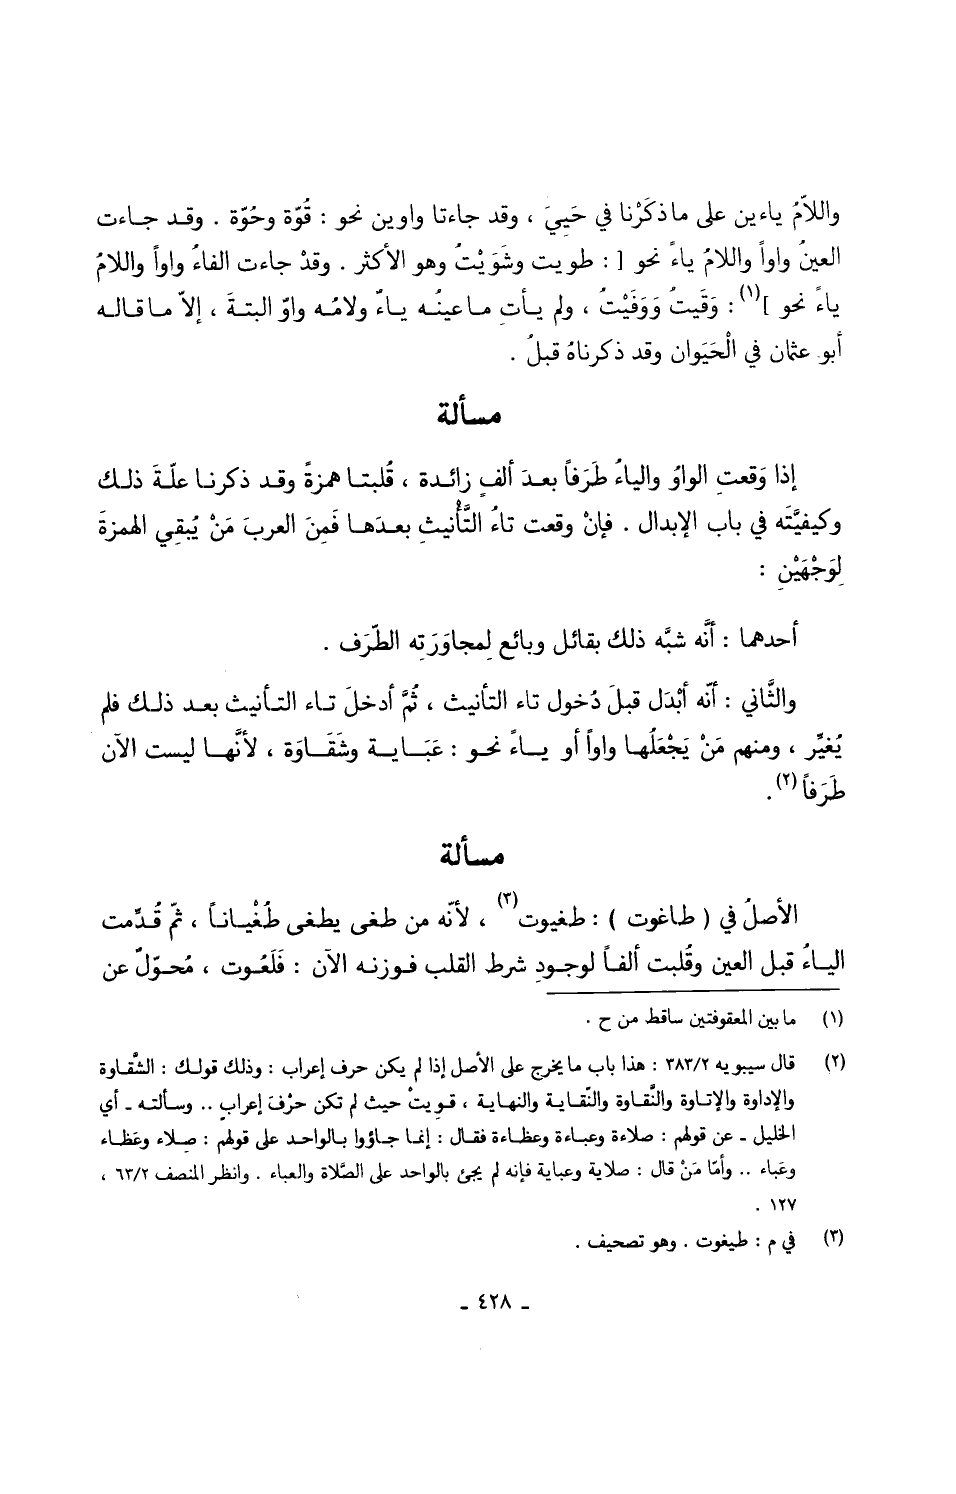 واللاّمُ ياءين على ماذكَرْنا في حَيِيَ ، وقد جاءتا واوين نحو : قُوّة وحُوّة . وقـد جـاءت
العينُ واواً واللامُ ياءً نحو [ : طويت وشَوَيْتُ وهو الأكثر . وقدْ جاءت الفاءُ واواً واللامُ
ياءً نحو ](١): وَقَيتُ وَوَفَيْتُ ، ولم يـأتِ مـاعينُـه يـاءٌ ولامُـه واوٌ البتـةَ ، إلاّ مـاقـالـه
أبو عثمان في الْحَيَوان وقد ذكرناهُ قبلُ .
مسـألة
إذا وَقعتِ الواوُ والياءُ طَرَفاً بعدَ ألفٍ زائـدة ، قُلبتـا همزةً وقـد ذكرنـا علّـةَ ذلـك
وكيفيَّتَه في باب الإبدال . فإنْ وقعت تاءُ التَّأْنيثِ بعـدَهـا فَمِنَ العربِ مَنْ يُبقي الهمزةَ
لِوَجْهَيْنِ :
أحدهما : أنَّه شبَّه ذلك بقائل وبائع لِمجاوَرَتِه الطّرَف .
والثَّاني : أنّه أبْدَل قبلَ دُخول تاء التأنيث ، ثُمَّ أدخلَ تـاء التـأنيث بعـد ذلـك فلم
يُغيِّر ، ومنهم مَنْ يَجْعَلُهـا واواً أو يـاءً نحـو : عَبَـايـة وشَقَـاوَة ، لأنَّهـا ليست الآن
طَرَفاً(٢).
مسـألة
الأصلُ في ( طاغوت ) : طغيوت(٣) ، لأنّه من طغى يطغى طُغْيانـاً ، ثمّ قُـدِّمت
اليـاءُ قبل العين وقُلبت ألفـاً لوجـودِ شرط القلب فـوزنـه الآن : فَلَعُـوت ، مُحـوّلٌ عن
(١) مابين المعقوفتين ساقط من ح .
(٢) قال سيبويه ٣٨٣/٢ : هذا باب مايخرج على الأصل إذا لم يكن حرف إعراب : وذلك قولـك : الشَّقـاوة
والإداوة والإتـاوة والنُّقـاوة والنِّقـايـة والنهايـة ، قـويتْ حيث لم تكن حرْفَ إعرابٍ .. وسألتـه ـ أي
الخليل ـ عن قولهم : صلاءة وعبـاءة وعظـاءة فقـال : إنمـا جـاؤوا بـالواحـد على قولهم : صـلاء وعَظـاء
وعَباء .. وأمّا مَنْ قال : صلاية وعباية فإنه لم يجئ بالواحد على الصَّلاة والعباء . وانظر المنصف ٦٣/٢ ،
١٢٧ .
(٣) في م : طيغوت . وهو تصحيف .
ـ ٤٢٨ ـ